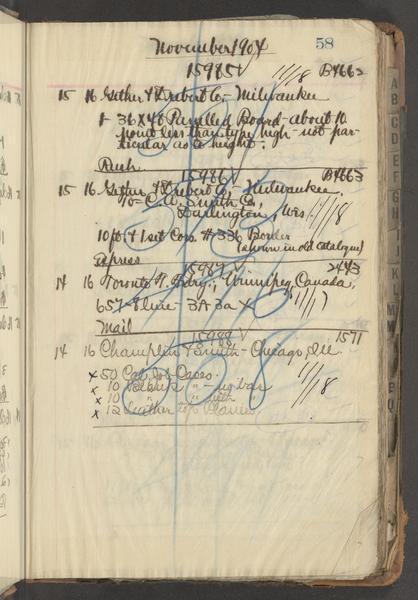 November 1904 58
15985 V 11/18 B4662
15 16 Gether & Drebert Co, Milwaukee
1- 36x48 Panelled Board - about 10
point less than type high - not par-
ticular as to height.
Rush
15986 V B4663
15 16 Gether & Drebert Co, Milwaukee.
To - C.A. Smith Co,
Darlington, Wis. 11/18
10 ft & 1 set Cors. #336 Border
(shown in old catalogue)
Express
15987 V 2443
14 16 Toronto T. Fdry., Winnipeg, Canada,
657 - 3A 3a 11/17
Mail
15988 V 1571
14 16 Champlin & Smith - Chicago, Ill.
x 50 Cal. Job Cases. 11/18
x 10 " - no bar
x 10 " " with
x 12 Leather top
A
B
C
D
E
F
G
H
I
J
K
L
M